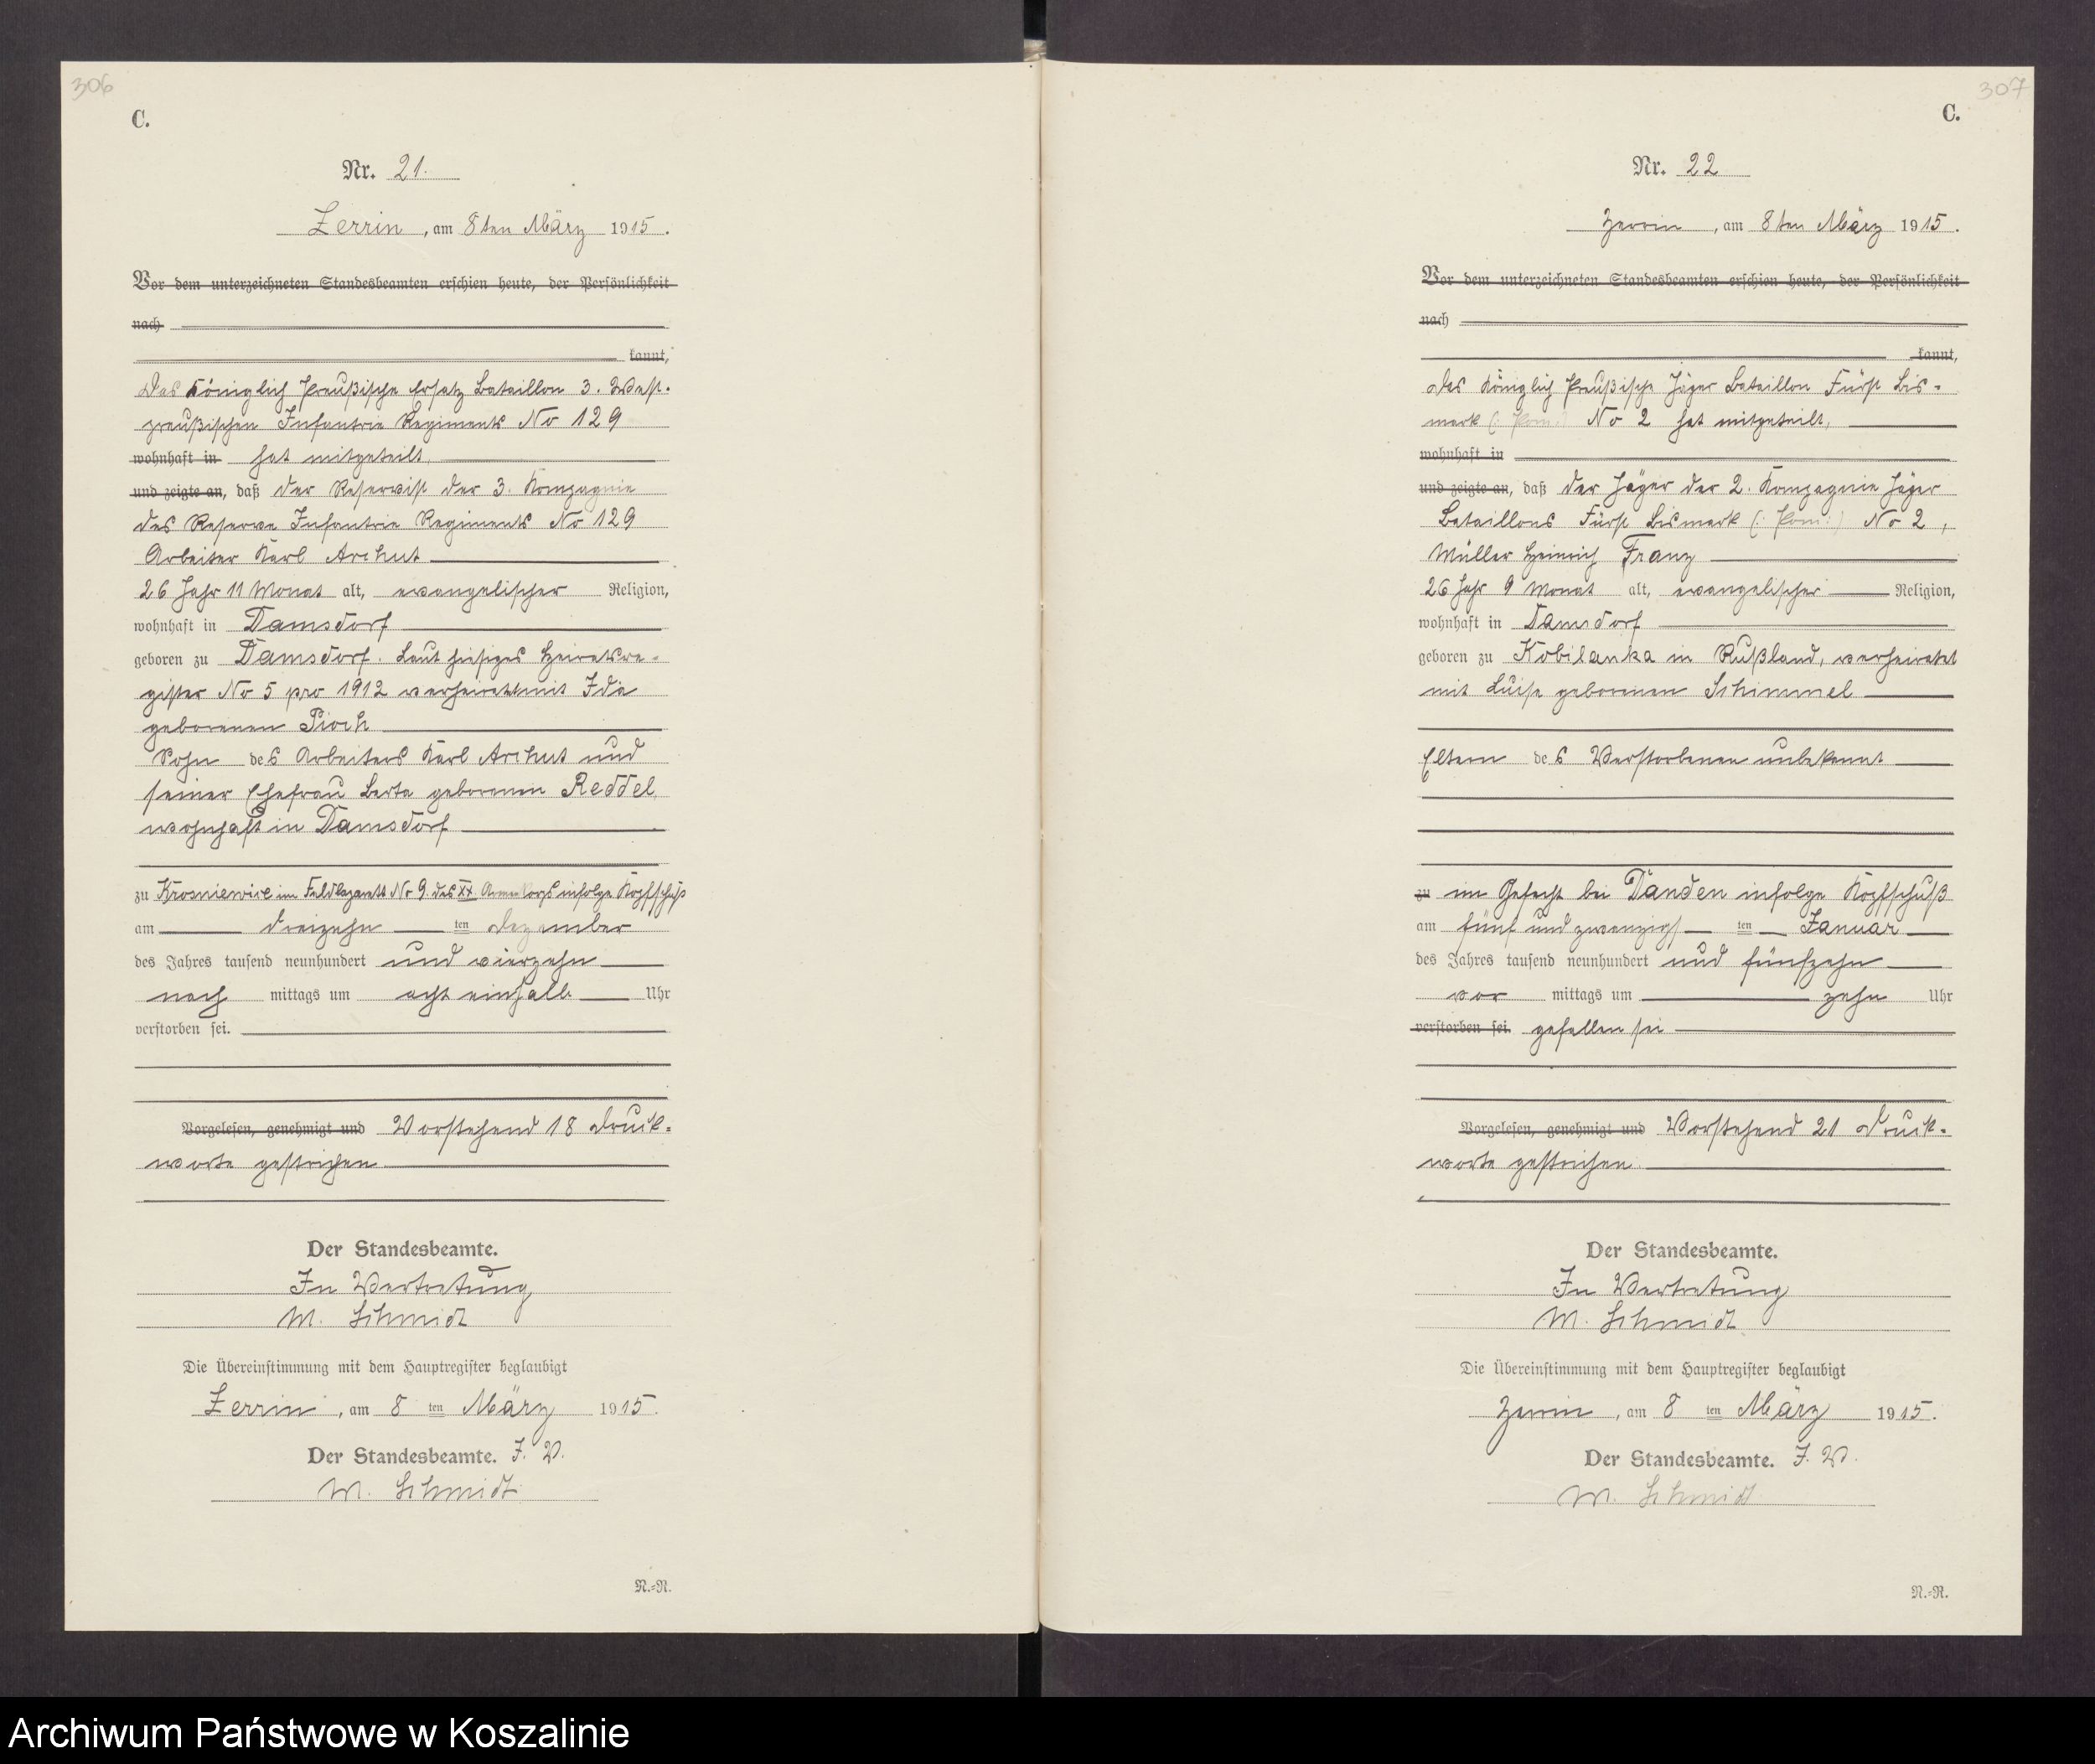 306
C.
Nr. 21.
Zerrin, am 8ten März 1915.
Vor dem unterzeichneten Standesbeamten erschien heute, der Persönlichkeit
nach
kannt,
Das Königlich Preußische Ersatz Bataillon 3. West-
preußischen Infantrie Regiments No 129
wohnhaft in hat mitgeteilt,
und zeigte an, daß der Reservist der 3. Kompagnie
des Reserve Infantrie Regiments No 129
Arbeiter Karl Archut
26 Jahr 11 Monat alt, evangelischer Religion,
wohnhaft in Damsdorf
geboren zu Damsdorf. Laut hiesiges Heiratsre-
gister No 5 pro 1912 verheiratet mit Ida
geborenen Pioch
Sohn des Arbeiters Karl Archut und
seiner Ehefrau Berta geborenen Reddel,
wohnhaft in Damsdorf
zu Krosniewice im Feldlazarett No 9 des XX Armeekorps infolge Kopfschuß
am dreizehn ten Dezember
des Jahres tausend neunhundert und vierzehn
nach mittags um acht einhalb Uhr
verstorben sei.
Vorgelesen, genehmigt und Vorstehend 18 Druck-
worte gestrichen
Der Standesbeamte.
In Vertretung
M. Schmidt
Die Übereinstimmung mit dem Hauptregister beglaubigt
Zerrin, am 8 ten März 1915.
Der Standesbeamte. J. V.
M. Schmidt
N.=R.
307
C.
Nr. 22
Zerrin, am 8ten März 1915.
Vor dem unterzeichneten Standesbeamten erschien heute, der Persönlichkeit
nach
kannt,
das Königlich Preußische Jäger Bataillon Fürst Bis-
mark (: Pom:) No 2 hat mitgeteilt,
wohnhaft in
und zeigte an, daß der Jäger der 2. Kompagnie Jäger
Bataillons Fürst Bismark (: Pom:) No 2,
Müller Heinrich Franz
26 Jahr 9 Monat alt, evangelischer Religion,
wohnhaft in Damsdorf
geboren zu Kobilanka in Rußland, verheiratet
mit Luise geborenen Schimmel
Eltern des Verstorbenen unbekannt
zu im Gefecht bei Danden infolge Kopfschuß
am fünf und zwanzigs ten Januar
des Jahres tausend neunhundert und fünfzehn
vor mittags um zehn Uhr
verstorben sei. gefallen sei
Vorgelesen, genehmigt und Vorstehend 21 Druck-
worte gestrichen.
Der Standesbeamte.
In Vertretung
M. Schmidt
Die Übereinstimmung mit dem Hauptregister beglaubigt
Zerrin, am 8 ten März 1915.
Der Standesbeamte. J. V.
M. Schmidt
N.=R.
Archiwum Państwowe w Koszalinie